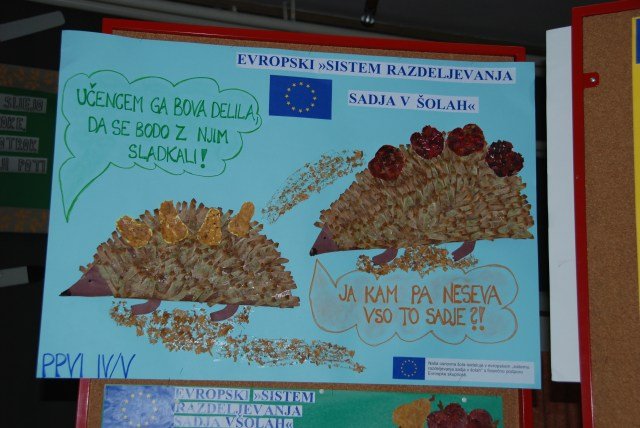 EVROPSKI »SISTEM RAZDELJEVANJA
SADJA V ŠOLAH«
UČENCEM GA BOVA DELILA,
DA SE BODO Z NJIM
SLADKALI!
JA KAM PA NESEVA
VSO TO SADJE?!
PPVI IV/V
EVROPSKI »SISTEM
RAZDELJEVANJA
SADJA VŠOLAH«